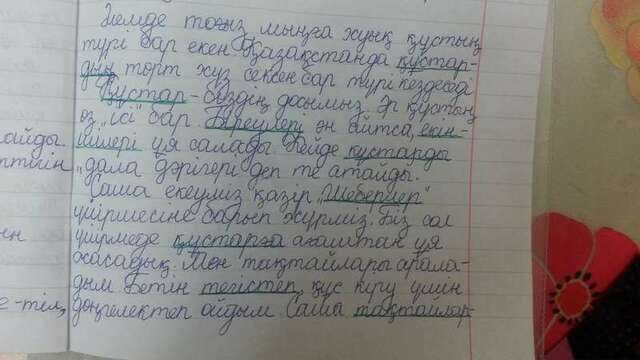 Әлемде тоғыз мыңға жуық құстың
түрі бар екен. Қазақстанда құстар-
дың төрт жүз сексен бар түрі кездеседі
Құстар - біздің досымыз. Әр құстың
өз „ісі" бар. Біреулері ән айтса, екін-
айды. шілері ұя салады. Кейде құстарды
птігін „дала дәрігері деп те атайды.
Саша екеуміз қазір „Шеберлер"
үйірмесіне барып жүрміз. Біз сол
үйірмеде құстарға ағаштан ұя
жасадық. Мен тақтайларды арала-
дым. Бетін тегістеп, құс кіру үшін
е-тіл, дөңгелектеп ойдым. Саша тақтайлар-